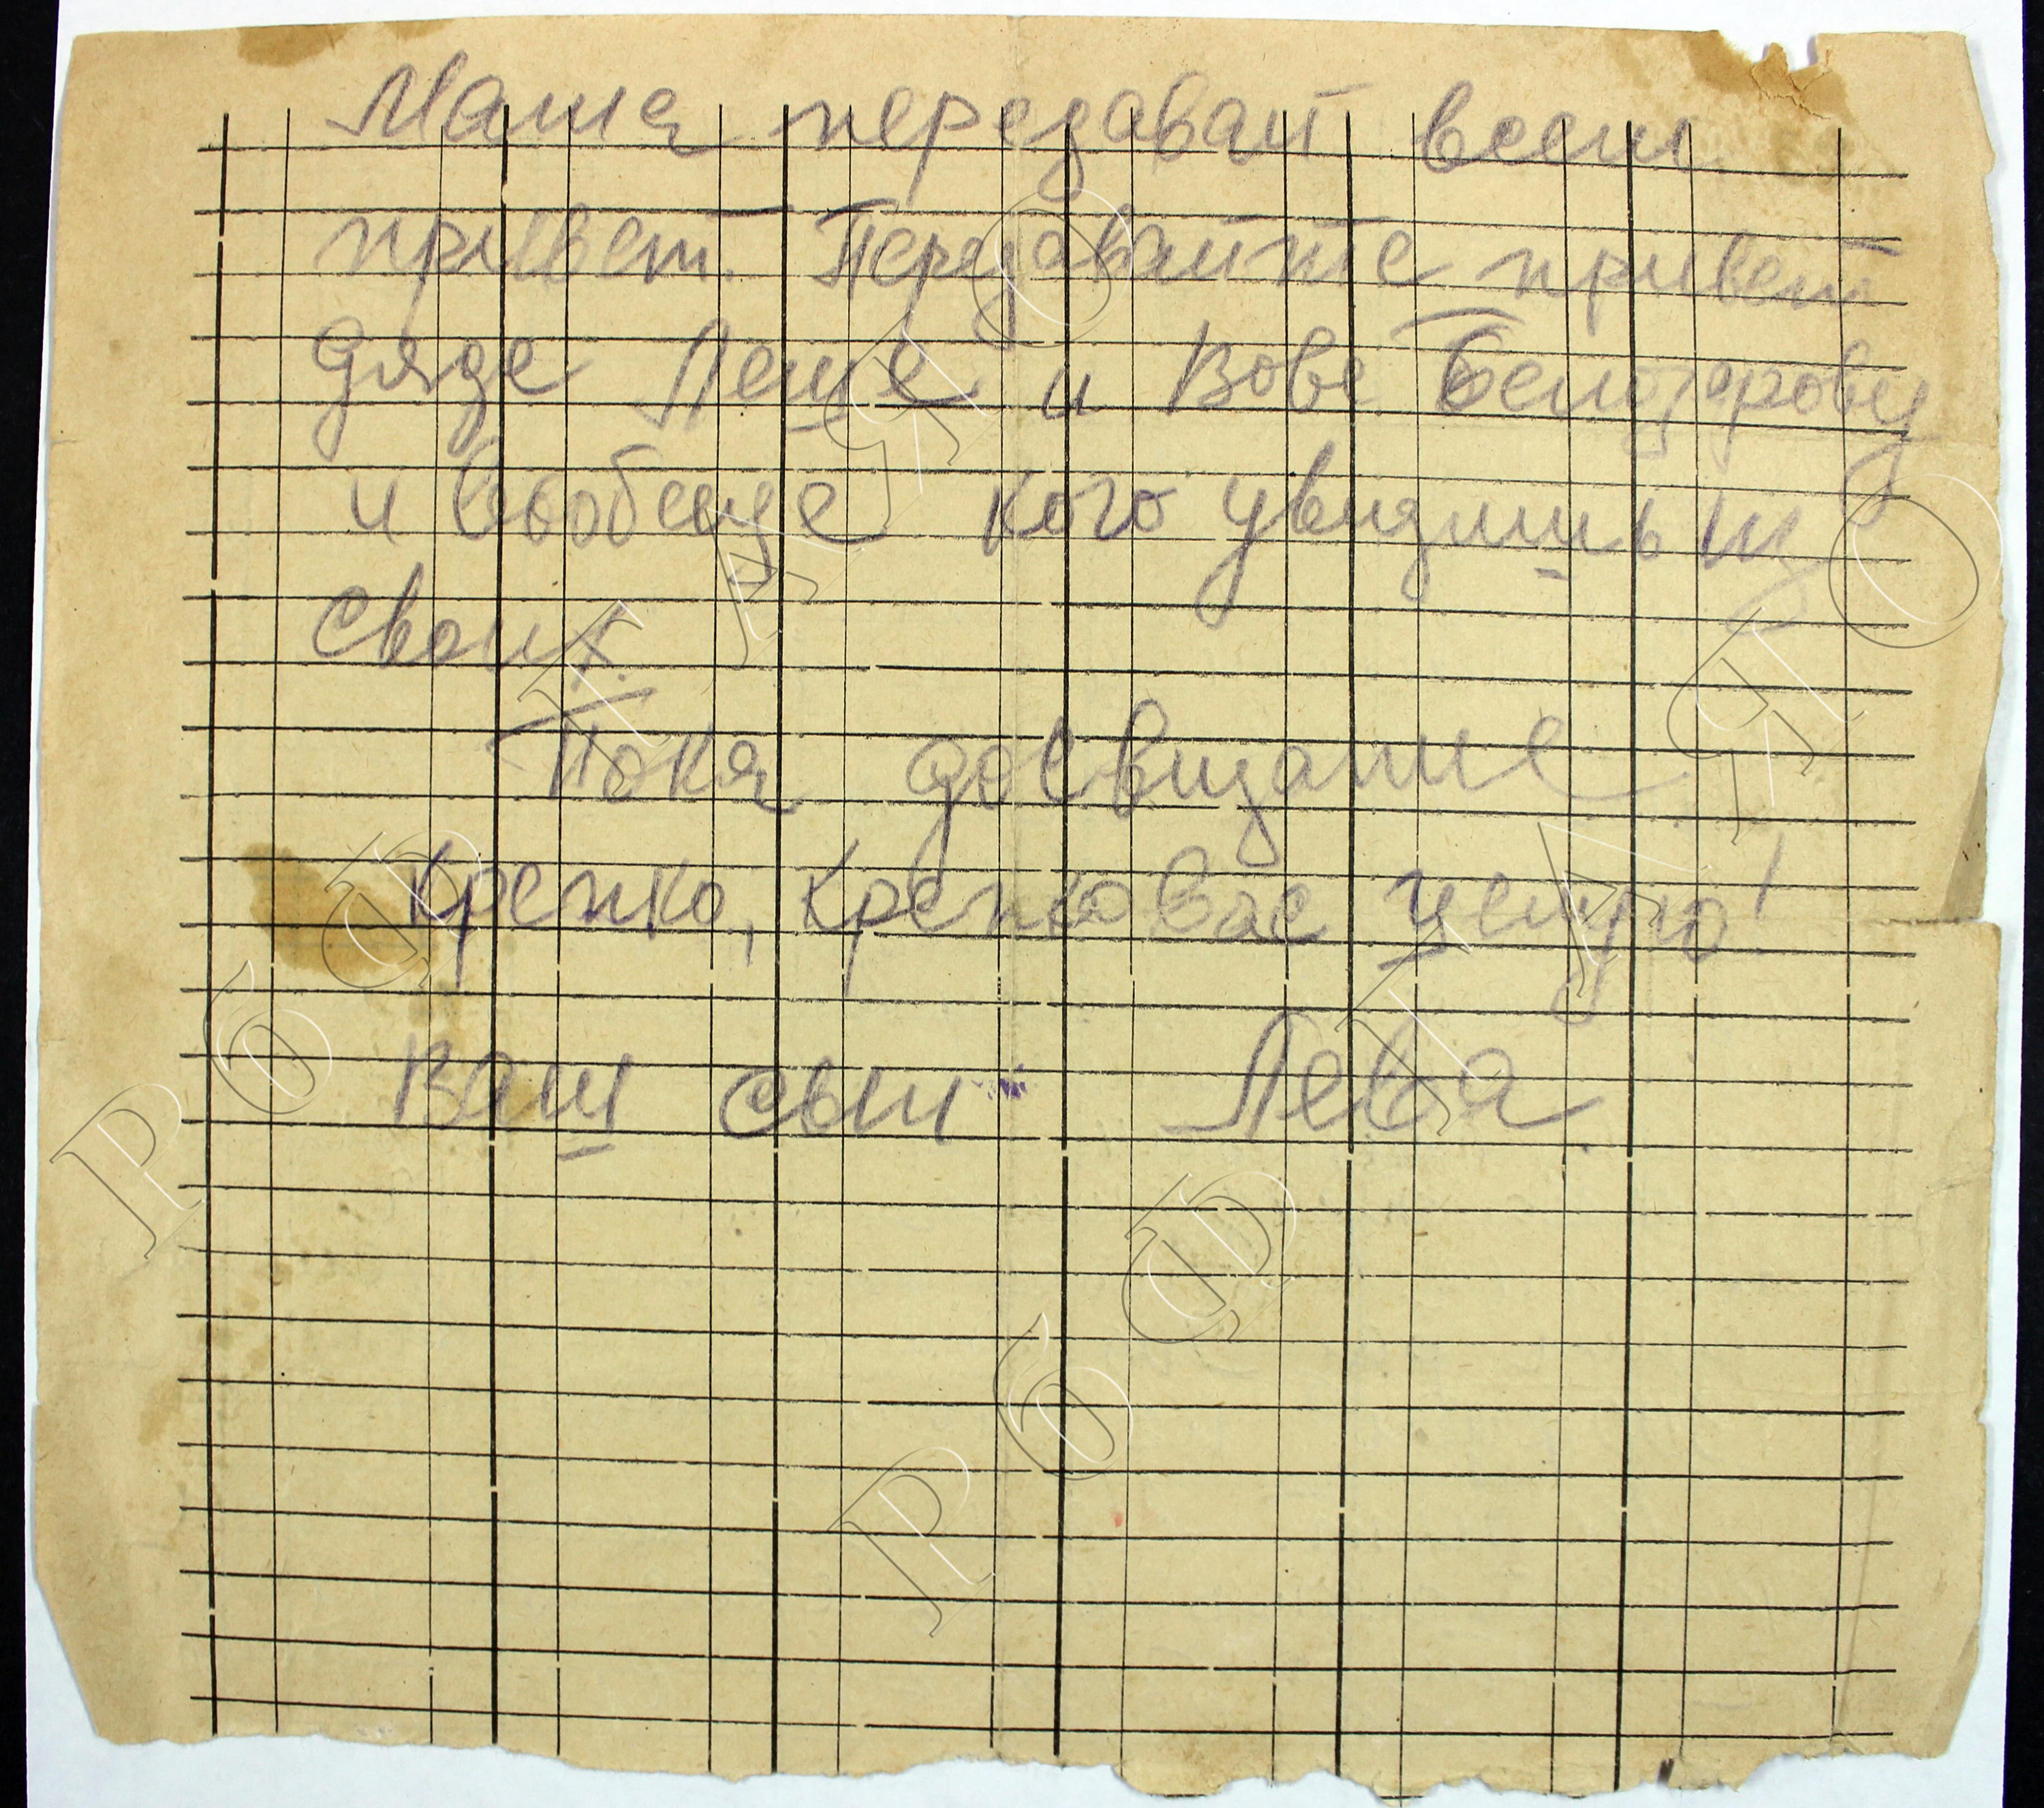 Маша передавай всем
привет. Передавайте привет
дяде Леше и Вове Белозерову
и вообеще кого увидишь из
своих.
Пока досвидание
Крепко, крепко вас целую!
Ваш сын Лева.